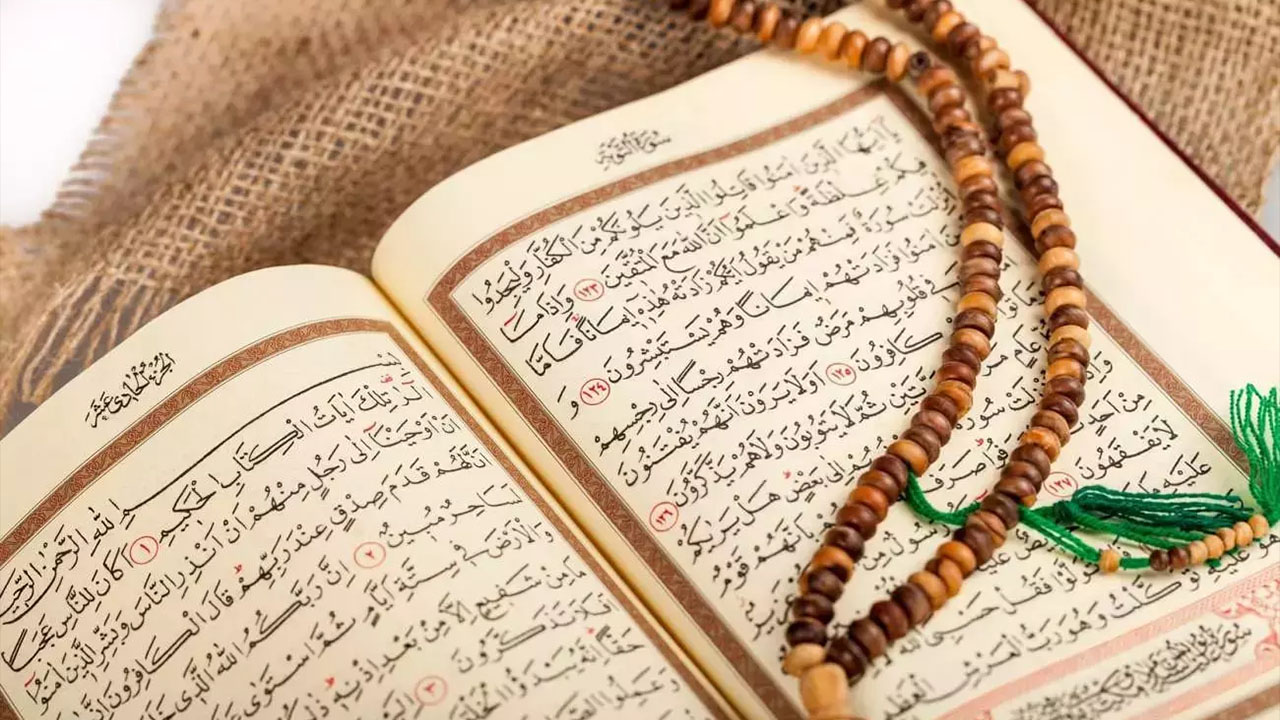 سورة التوبة
يا ايها الذين امنوا قاتلوا الذين يلونكم من الكفار وليجدوا
فيكم غلظة واعلموا ان الله مع المتقين ١٢٣ واذا ما
انزلت سورة فمنهم من يقول ايكم زادته هذه ايمانا فاما
امنوا فزادتهم ايمانا وهم يستبشرون ١٢٤ و
قلوبهم مرض فزادتهم رجسا الى رجسهم
كافرون ١٢٥ اولا يرون انهم يفتنون
عام ثم لا يتوبون ولا هم يذكرون ١٢٦
سورة الى بعض هل يريكم
من احد صرف بانهم قوم
لا يفقهون ١٢٧ رسول من
عليه ما
فقل حسبي الله
وكلت وهو رب العرش العظيم
الجزء الحادي عشر
بسم الله الرحمن الرحيم
الر تلك ايات الكتاب الحكيم ١ اكان للناس عجبا
ان اوحينا الى رجل منهم ان انذر الناس وبشر الذين امنوا
ان لهم قدم صدق عند ربهم قال الكافرون ان
لساحر مبين ٢ ان ربكم الله الذي
والارض في ستة ايام ثم استوى
ما من شفيع الا من بعد اذنه
افلا تذكرون ٣
حقا انه يبدؤا الخلق
وعملوا